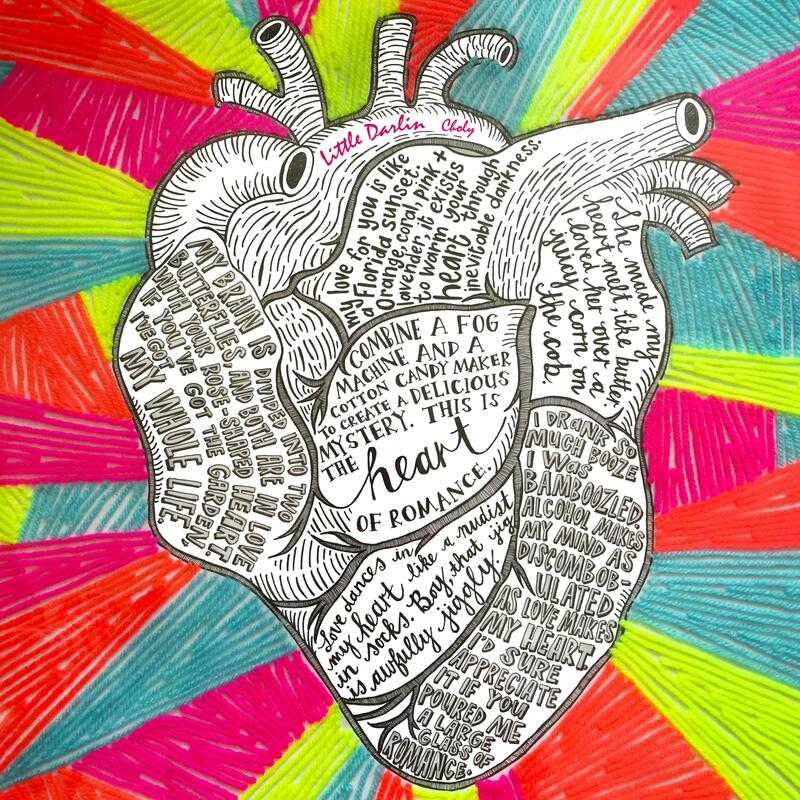 Little Darlin Choly
My love for you is like
a Florida sunset.
Orange, coral, pink +
lavender, it exists
to warm your
heart through
inevitable darkness.
She made my
heart melt like butter.
I loved her over a
juicy corn on
the cob.
MY BRAIN IS DIVIDED INTO TWO
BUTTERFLIES, AND BOTH ARE IN LOVE
WITH YOUR ROSE-SHAPED HEART.
IF YOU'VE GOT THE GARDEN,
I'VE GOT
MY WHOLE LIFE.
COMBINE A FOG
MACHINE AND A
COTTON CANDY MAKER
TO CREATE A DELICIOUS
MYSTERY. THIS IS
THE heart
OF ROMANCE.
Love dances in
my heart like a nudist
in socks. Boy, that jig
is awfully jiggly.
I DRANK SO
MUCH BOOZE
I WAS
BAMBOOZLED.
ALCOHOL MAKES
MY MIND AS
DISCOMBOB-
ULATED
AS LOVE MAKES
MY HEART.
I'D SURE
APPRECIATE
IT IF YOU
POURED ME
A LARGE
GLASS OF
ROMANCE.